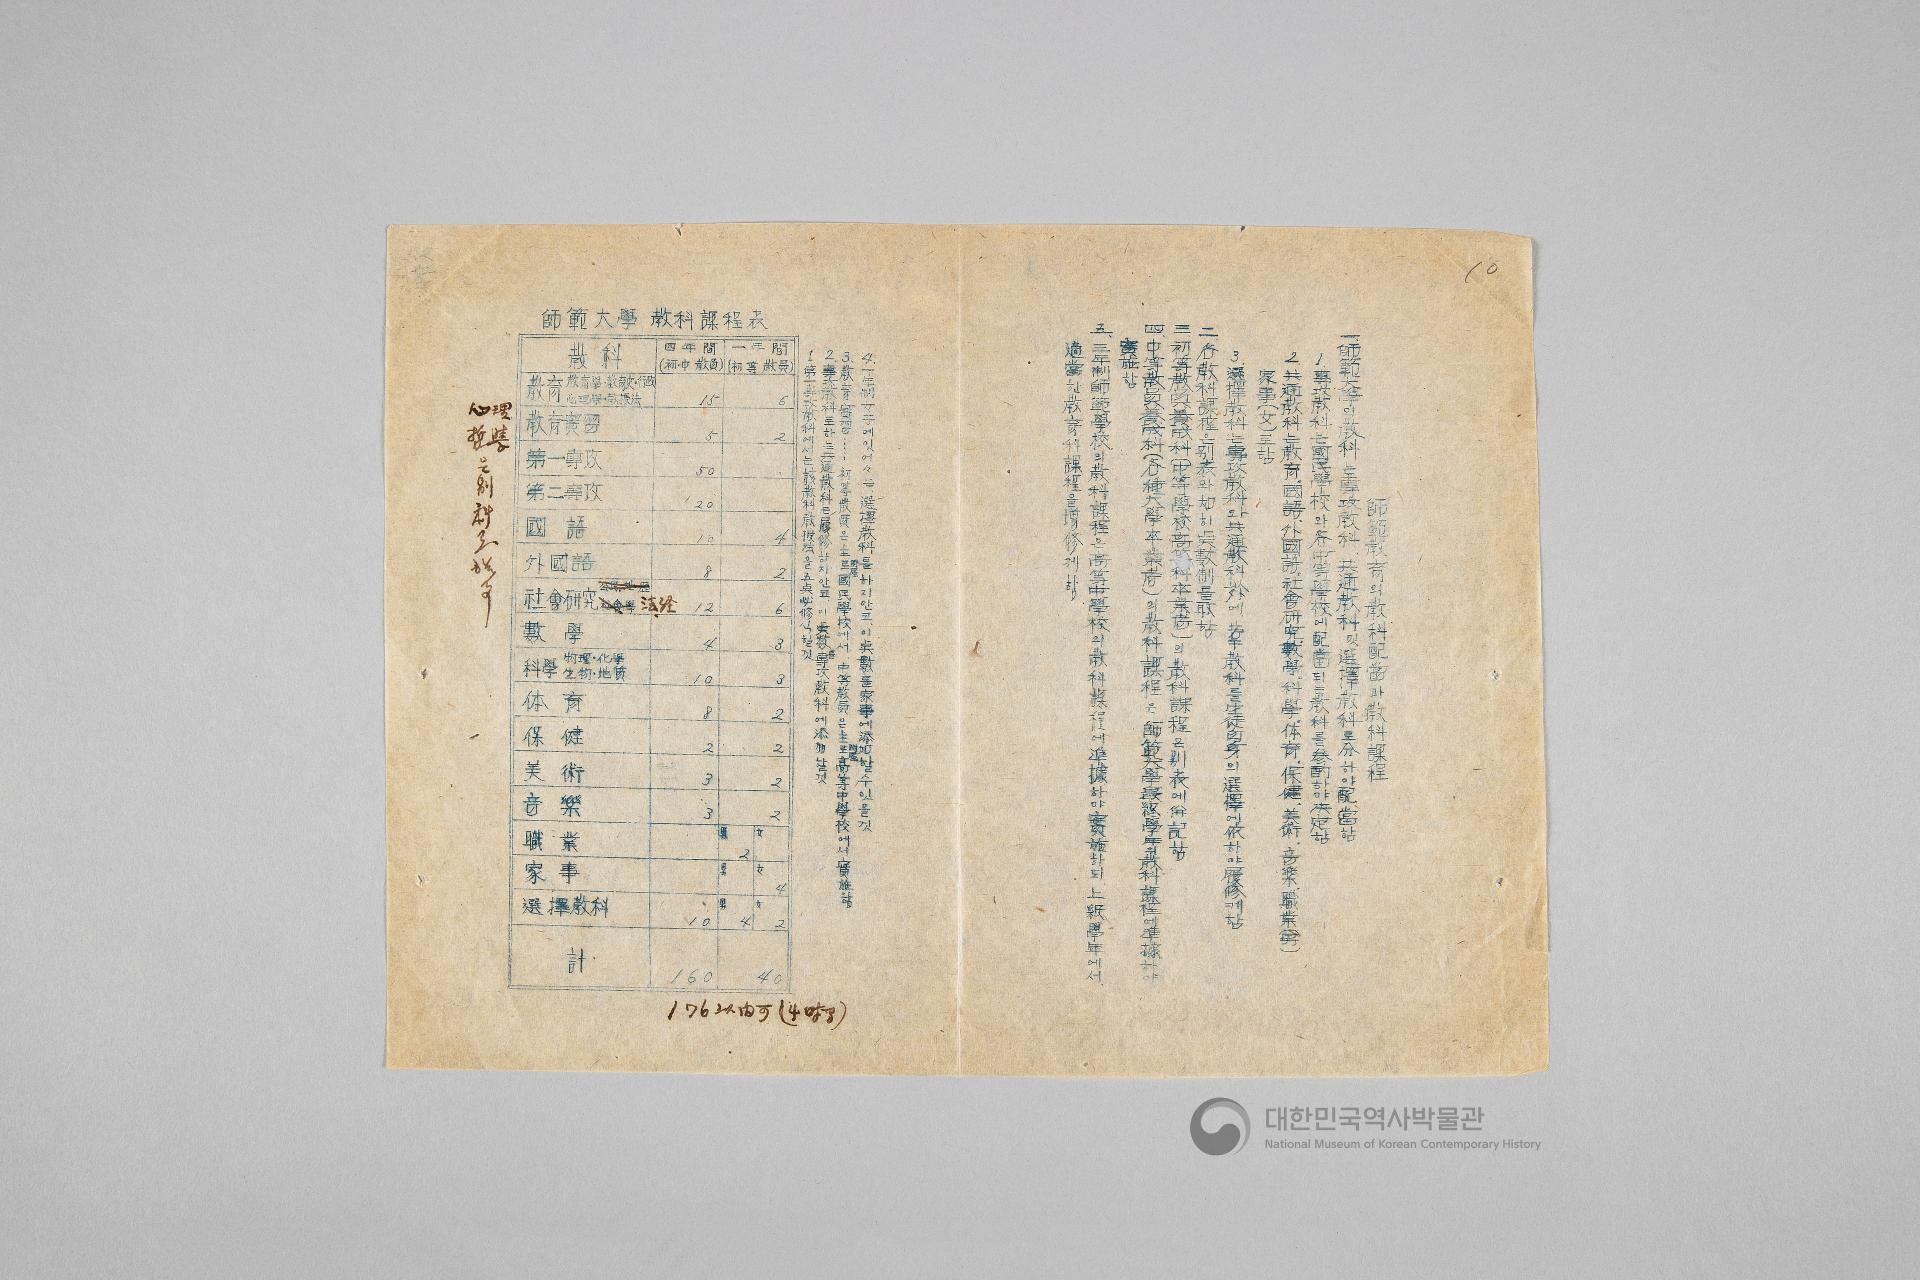 10
師範敎育의敎科配當과敎科課程
一、師範大學의敎科는專攻敎科、共通敎科 및 選擇敎科로分하야配當함
1 專攻敎科는國民學校와各中等學校에配當되는敎科를參酌하야決定함
2 共通敎科는敎育、國語、外國語、社會硏究、數學、科學、体育、保健、美術、音樂、職業(男)
家事(女)로함
3 選擇敎科는專攻敎科와共通敎科以外에 若干敎科를生徒自身의選擇에依하야履修케함
二 各敎科課程은別表와如히点數制를取함
三 初等敎員養成科(中等學校高等科卒業者)의敎科課程은別表에倂記함
四、中等敎員養成科(各種大學卒業者)의敎科課程은師範大學最終學年의敎科課程에準據하야
實施함
五、三年制師範學校의敎科課程은高等中學校의敎科課程에準據하야實施하되 上級學年에서
適當한敎育科課程을增修케함
4. 一年制女子에잇어々는 選擇敎科를하지안코、이点數를家事에添加할수잇을것
3、敎育實習……初等敎員은主로國民學校에서 中等敎員은主로高等中學校에서實施함
附屬
附屬
2 專攻敎科로하는共通敎科는履修하지안코、이点數를專攻敎科에添加할것
1 第一專攻敎科에서는該敎科敎授法을五点必修식힐것
師範大學 敎科課程表
敎科 四年間(初·中敎員) 一年間(初等敎員)
敎育 敎育學·敎育史·行政 心理學·敎授法 15 6
敎育實習 5 2
第一專攻 50
第二專攻 20
國語 10 4
外國語 8 2
社會硏究 法經 12 6
數學 4 3
科學 物理·化學 生物·地質 10 3
体育 8 2
保健 2 2
美術 3 2
音樂 3 2
職業 男 2 女
家事 男 女 4
選擇敎科 10 男 4 女 2
計 160 40
176以內可
心理